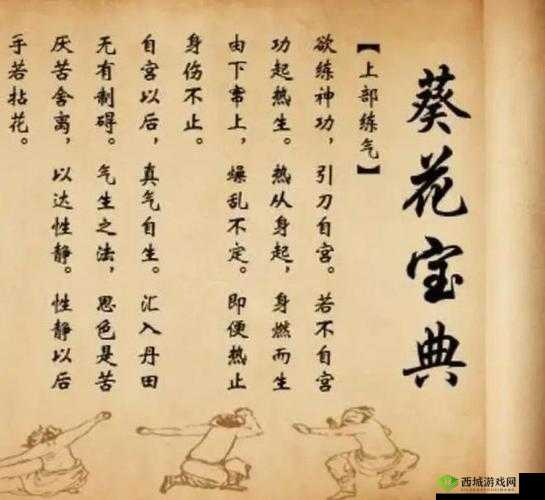 葵花宝典
【上部练气】
欲练神功，引刀自宫。若不自宫
功起热生。热从身起，身燃而生
由下窜上，燥乱不定。即便热止
身伤不止。
自宫以后，真气自生。汇入丹田
无有制碍。气生之法，思色是苦
厌苦舍离，以达性静。性静以后
手若拈花。
西城游戏网